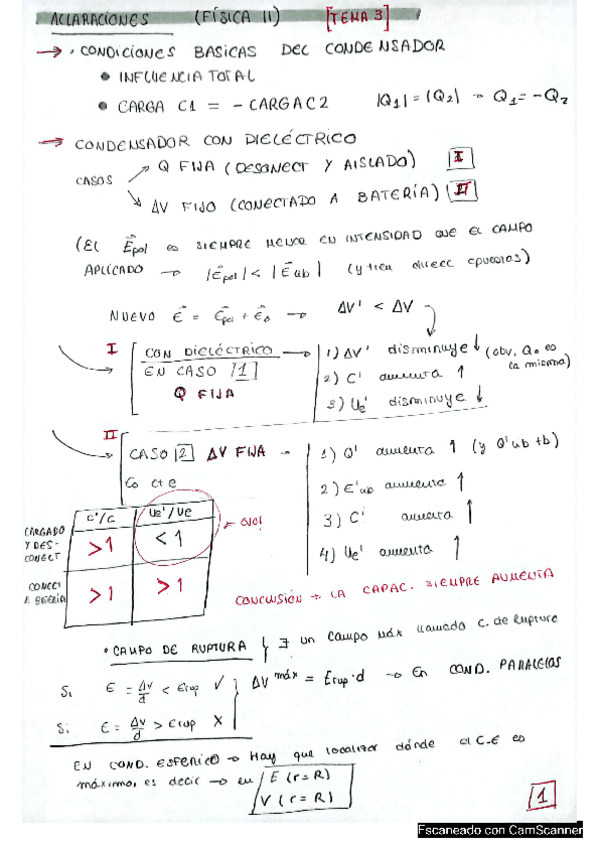 ACLARACIONES (FÍSICA II) [TEMA 3]
→ · CONDICIONES BASICAS DEL CONDENSADOR
• INFLUENCIA TOTAL
• CARGA C1 = - CARGA C2 |Q1| = |Q2| → Q1 = -Q2
→ CONDENSADOR CON DIELÉCTRICO
CASOS
Q FIJA (DESCONECT Y AISLADO) I
ΔV FIJO (CONECTADO A BATERÍA) II
(EL Epol es SIEMPRE MENOR EN INTENSIDAD QUE EL CAMPO
APLICADO → |Epol| < |Eub| (y tien direcc opuestas)
NUEVO E = Epol + E0 → ΔV' < ΔV
I
CON DIELÉCTRICO
EN CASO [1]
Q FIJA
1) ΔV' disminuye ↓ (obv, Q0 es la misma)
2) C' aumenta ↑
3) Ue' disminuye ↓
II
CASO [2] ΔV FIJA →
E0 cte
1) Q' aumenta ↑ (y Q'ub tb)
2) E'ub aumenta ↑
3) C' aumenta ↑
4) Ue' aumenta ↑
C'/C Ue'/Ue
CARGADO Y DES-CONECT >1 <1 → OJO!
CONECT A BATERÍA >1 >1
CONCLUSIÓN → LA CAPAC. SIEMPRE AUMENTA
• CAMPO DE RUPTURA } ∃ un campo máx llamado C. de Ruptura
Si E = ΔV/d < Erup ✓
Si E = ΔV/d > Erup X
ΔV máx = Erup·d → En COND. PARALELOS
EN COND. ESFERICO → Hay que localizar dónde el C.E es
máximo, es decir → en E (r=R)
V (r=R)
1
Escaneado con CamScanner